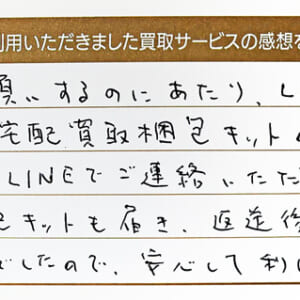 利用いただきました買取サービスの感想を
願いするのにあたり、L
宅配買取梱包キット
LINEでご連絡いただ
キットも届き、返送後
でしたので、安心して利